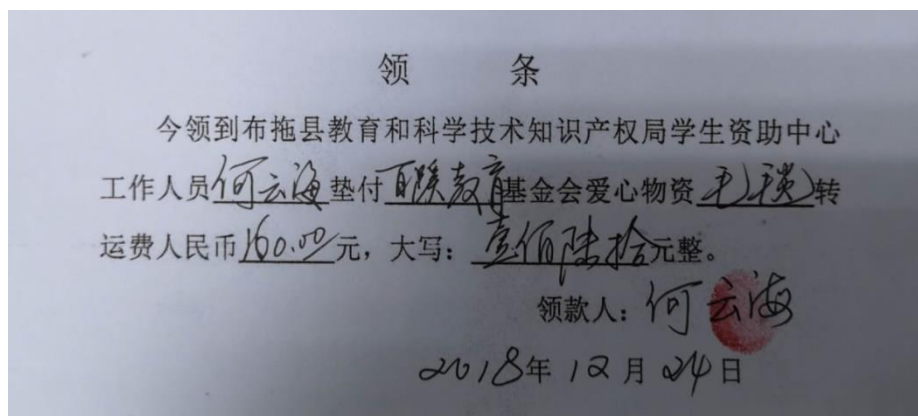 领 条
今领到布拖县教育和科学技术知识产权局学生资助中心
工作人员何云海垫付百蹊教育基金会爱心物资毛毯转
运费人民币160.00元，大写：壹佰陆拾元整。
领款人：何云海
2018年12月24日